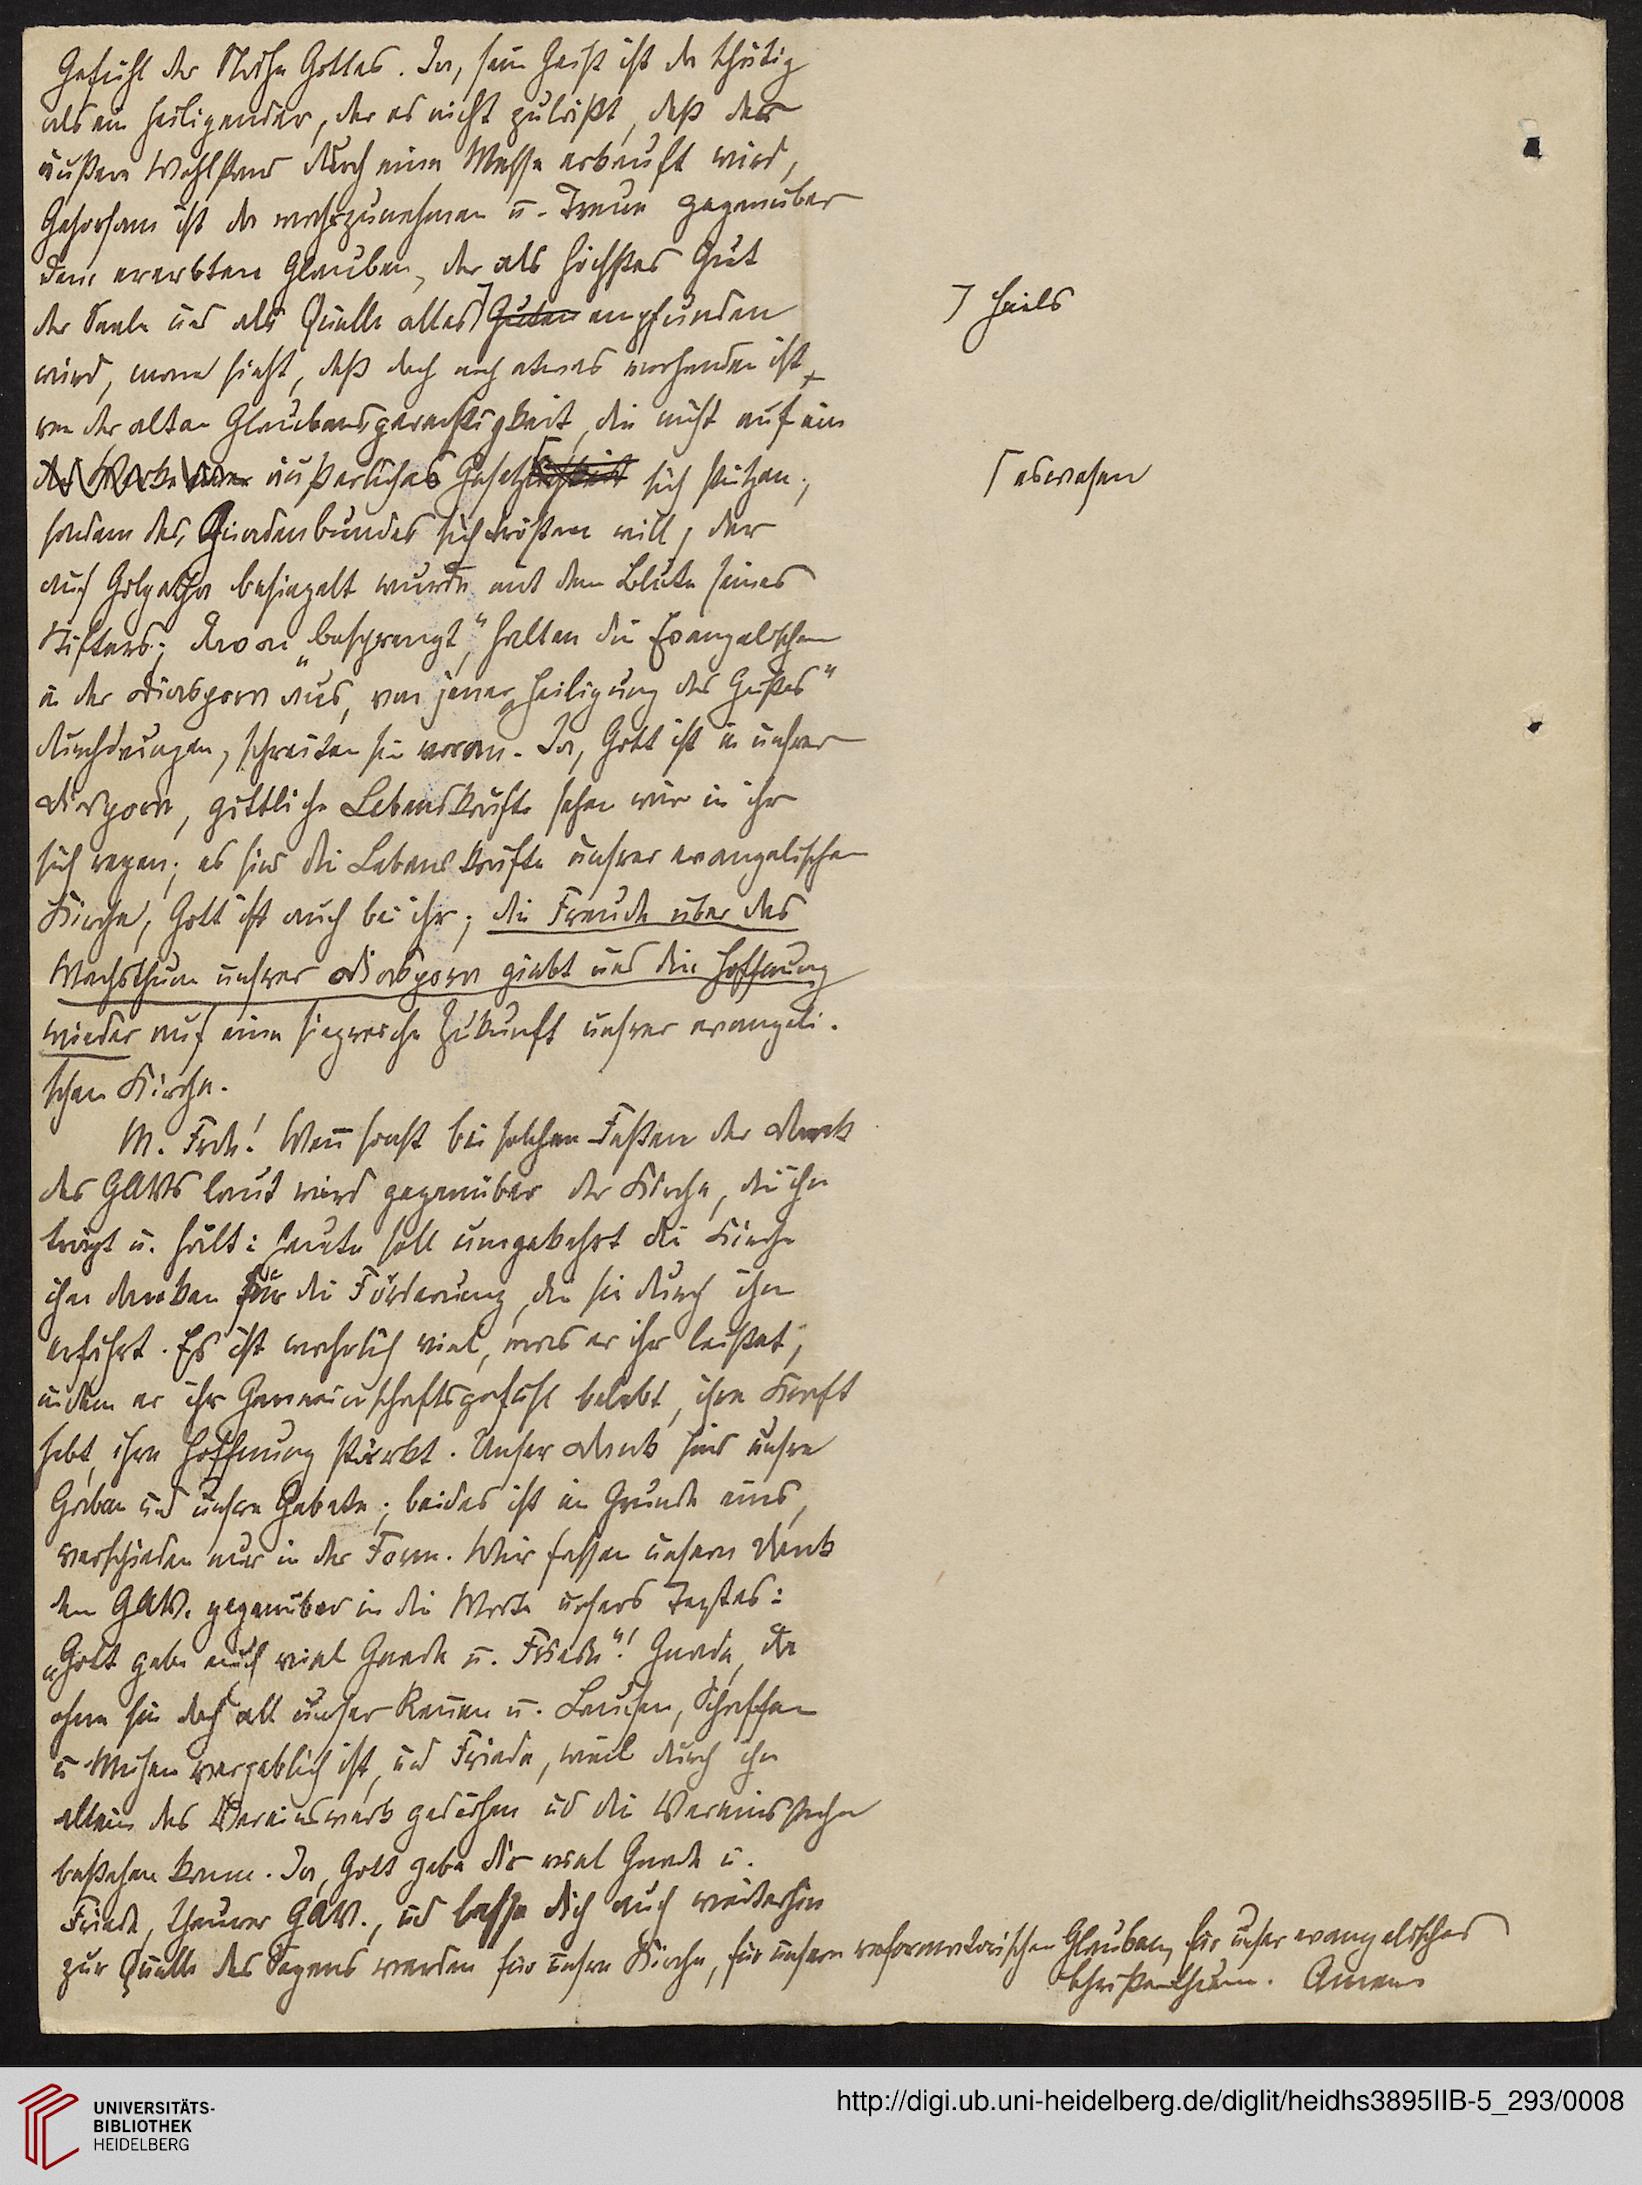 Gefühl der Nähe Gottes. Ja, sein Geist ist da thätig
als ein heiligender, der es nicht zuläßt, daß der
äußere Wohlstand durch eine Messe erkauft wird,
Gehorsam ist da wahrzunehmen u. Treue gegenüber
dem ererbten Glauben, der als höchstes Gut
der Seele und als Quelle alles Guten empfunden
⅂ Heils
wird, man sieht, daß doch noch etwas vorhanden ist,
von der alten Glaubensgerechtigkeit, die nicht auf ein
des Werks äußerliches Gesetzlichkeit sich stützen,
⌈ eswesen
sondern des Gnadenbundes sich trösten will, der
auf Golgatha besiegelt wurde mit dem Blute seines
Stifters; davon „besprengt," halten die Evangelischen
in der Diaspora aus, von jener „Heiligung des Geistes"
durchdrungen, schreiten sie voran. Ja, Gott ist in unsrer
Diaspora, göttliche Lebenskräfte sehen wir in ihr
sich regen; es sind die Lebenskräfte unsrer evangelischen
Kirche, Gott ist auch bei ihr; die Freude über das
Wachsthum unsrer Diaspora giebt uns die Hoffnung
wieder auf eine siegreiche Zukunft unsrer evangeli-
schen Kirche.
M. Frde! Wenn sonst bei solchen Festen der Dank
des GAVs laut wird gegenüber der Kirche, die ihn
trägt u. hält: heute soll umgekehrt die Kirche
ihm danken für die Förderung, die sie durch ihn
erfährt. Es ist wahrlich viel, was er ihr leistet,
indem er ihr Gemeinschaftsgefühl belebt, ihre Kraft
hebt, ihre Hoffnung stärkt. Unser Dank sind unsre
Gaben und unsre Gebete; beides ist im Grunde eins,
verschieden nur in der Form. Wir fassen unsern Dank
dem GAV. gegenüber in die Worte unsers Textes:
„Gott gebe euch viel Gnade u. Friede"! Gnade, da
ohne sie doch all unser Rennen u. Laufen, Schaffen
u Mühen vergeblich ist, und Friede, weil durch ihn
allein das Vereinswerk gedeihen und die Vereinssache
bestehen kann. Ja, Gott gebe dir viel Gnade u.
Friede, theurer GAV., und lasse dich auch weiterhin
zur Quelle des Segens werden für unsre Kirche, für unsern reformatorischen Glauben, für unser evangelisches
Christenthum. Amen
UNIVERSITÄTS-
BIBLIOTHEK
HEIDELBERG
http://digi.ub.uni-heidelberg.de/diglit/heidhs3895IIB-5_293/0008